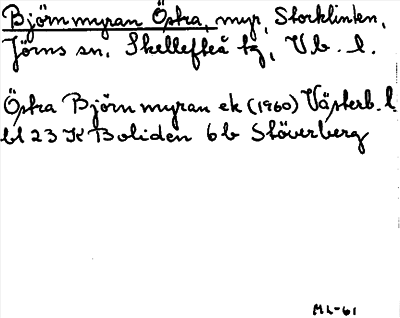 Björnmyran Östra, myr, Storklinten,
Jörns sn, Skellefteå tg, Vb. l.
Östra Björnmyran ek (1960) Västerb. l
bl 23 K Boliden 6b Stöverberg
ML-61